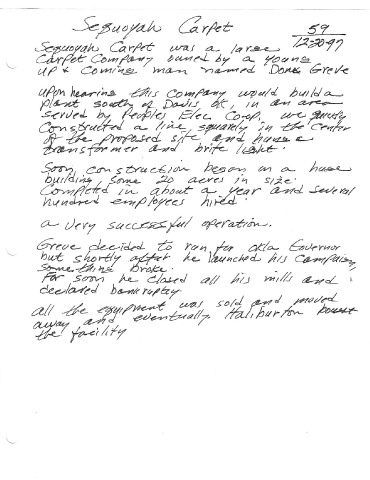 Sequoyah Carpet
59
12-20-97
Sequoyah Carpet was a large
Carpet Company owned by a young
up & coming man named Greve
upon hearing this company would build a
plant south of Davis OK, in an area
served by Peoples Elec Co-op, we
Constructed a line, squarely in the Center
of the proposed site and hung a
transformer and brite light.
Soon construction began on a huge
building, some 20 acres in size.
Completed in about a year and several
hundred employees hired.
a very successful operation.
Greve decided to run for okla Governor
but shortly after he launched his Campaign,
something broke.
For soon he closed all his mills and
declared bankruptcy
all the equipment was sold and moved
away and eventually, Haliburton bought
the facility